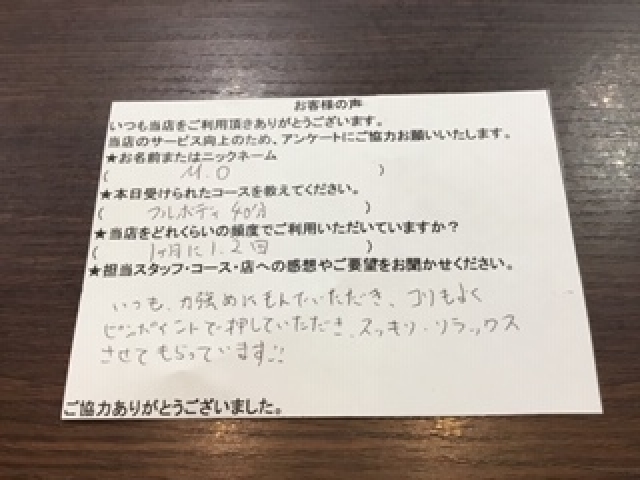 お客様の声
いつも当店をご利用頂きありがとうございます。
当店のサービス向上のため、アンケートにご協力お願いいたします。
★お名前またはニックネーム
( M.O )
★本日受けられたコースを教えてください。
( フルボディ 40分 )
★当店をどれくらいの頻度でご利用いただいていますか？
( 1ヶ月に1.2回 )
★担当スタッフ・コース・店への感想やご要望をお聞かせください。
いつも、力強めにもんでいただき、コリもよく
ピンポイントで押していただき、スッキリ・リラックス
させてもらっています!!
ご協力ありがとうございました。